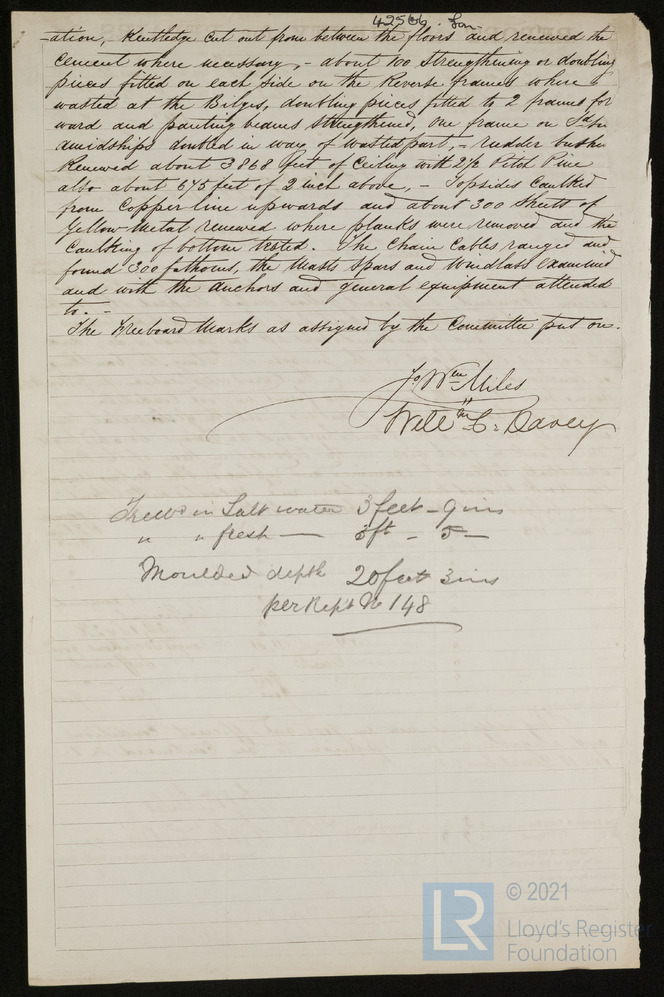 42566. Lon
-ation, Kentledge cut out from between the floors and renewed the
cement where necessary, - about 100 strengthening or doubling
pieces fitted on each side on the Reverse frames where
wasted at the Bilges, doubling pieces fitted to 2 frames for
ward and panting beams strengthened, one frame on
amidships doubled in way of wasted part, - rudder
Renewed about 3868 feet of Ceiling with 2½ Pitch Pine
also about 675 feet of 2 inch above, - Topsides caulked
from Copper line upwards and about 300 sheets of
Yellow Metal renewed where planks were removed and the
caulking of bottom tested. The Chain Cables ranged and
found 300 fathoms, the Masts Spars and Windlass examined
and with the anchors and general equipment attended
to. -
The Freeboard Marks as assigned by the Committee put on.
Jo Wm Miles
Willm C. Davey
Freebd in Salt water 3 feet - 9 ins
" " fresh — 3 ft - 5 —
Moulded depth 20 feet 3 ins
per Rept No 148
© 2021
LR
Lloyd's Register
Foundation